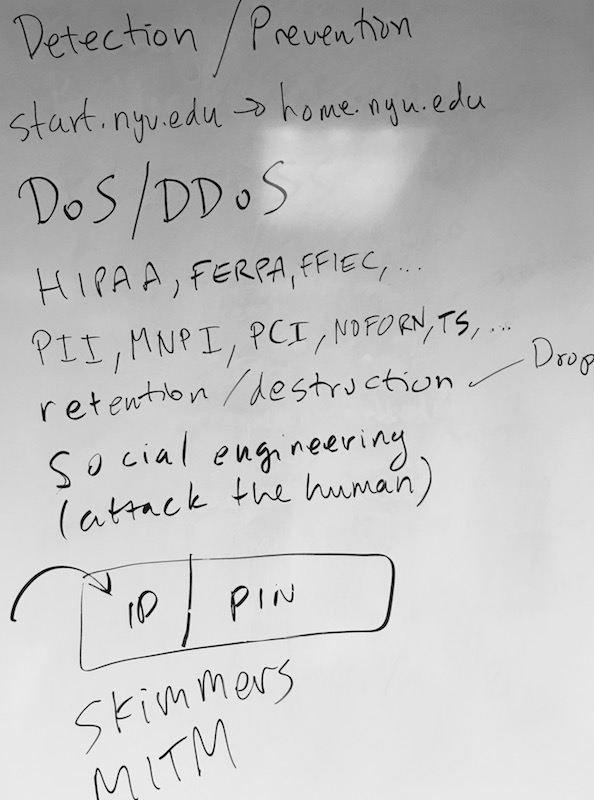 Detection / Prevention
start.nyu.edu → home.nyu.edu
DoS/DDoS
HIPAA, FERPA, FFIEC, ...
PII, MNPI, PCI, NOFORN, TS, ...
retention / destruction Drop
Social engineering
(attack the human)
ID PIN
Skimmers
MITM